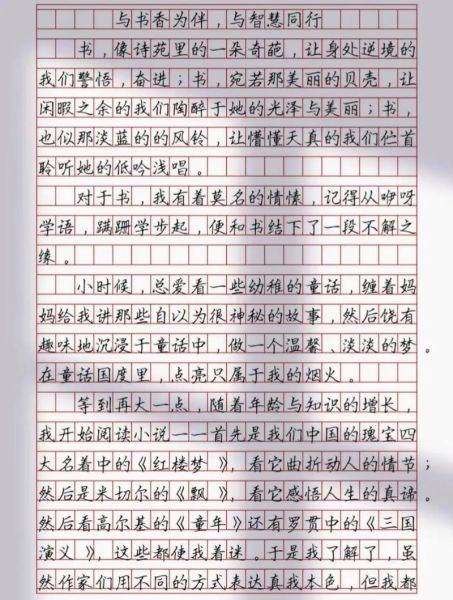 与书香为伴，与智慧同行
书，像诗苑里的一朵奇葩，让身处逆境的
我们警悟，奋进；书，宛若那美丽的贝壳，让
闲暇之余的我们陶醉于她的光泽与美丽；书，
也似那淡蓝的的风铃，让懵懂天真的我们伫首
聆听她的低吟浅唱。
对于书，我有着莫名的情愫，记得从咿呀
学语，蹒跚学步起，便和书结下了一段不解之
缘。
小时候，总爱看一些幼稚的童话，缠着妈
妈给我讲那些自以为很神秘的故事，然后饶有
趣味地沉浸于童话中，做一个温馨、淡淡的梦。
在童话国度里，点亮只属于我的烟火。
等到再大一点，随着年龄与知识的增长，
我开始阅读小说——首先是我们中国的瑰宝四
大名着中的《红楼梦》，看它曲折动人的情节；
然后是米切尔的《飘》，看它感悟人生的真谛。
然后看高尔基的《童年》还有罗贯中的《三国
演义》，这些都使我着迷。于是我了解了，虽
然作家们用不同的方式表达真我本色，但我都